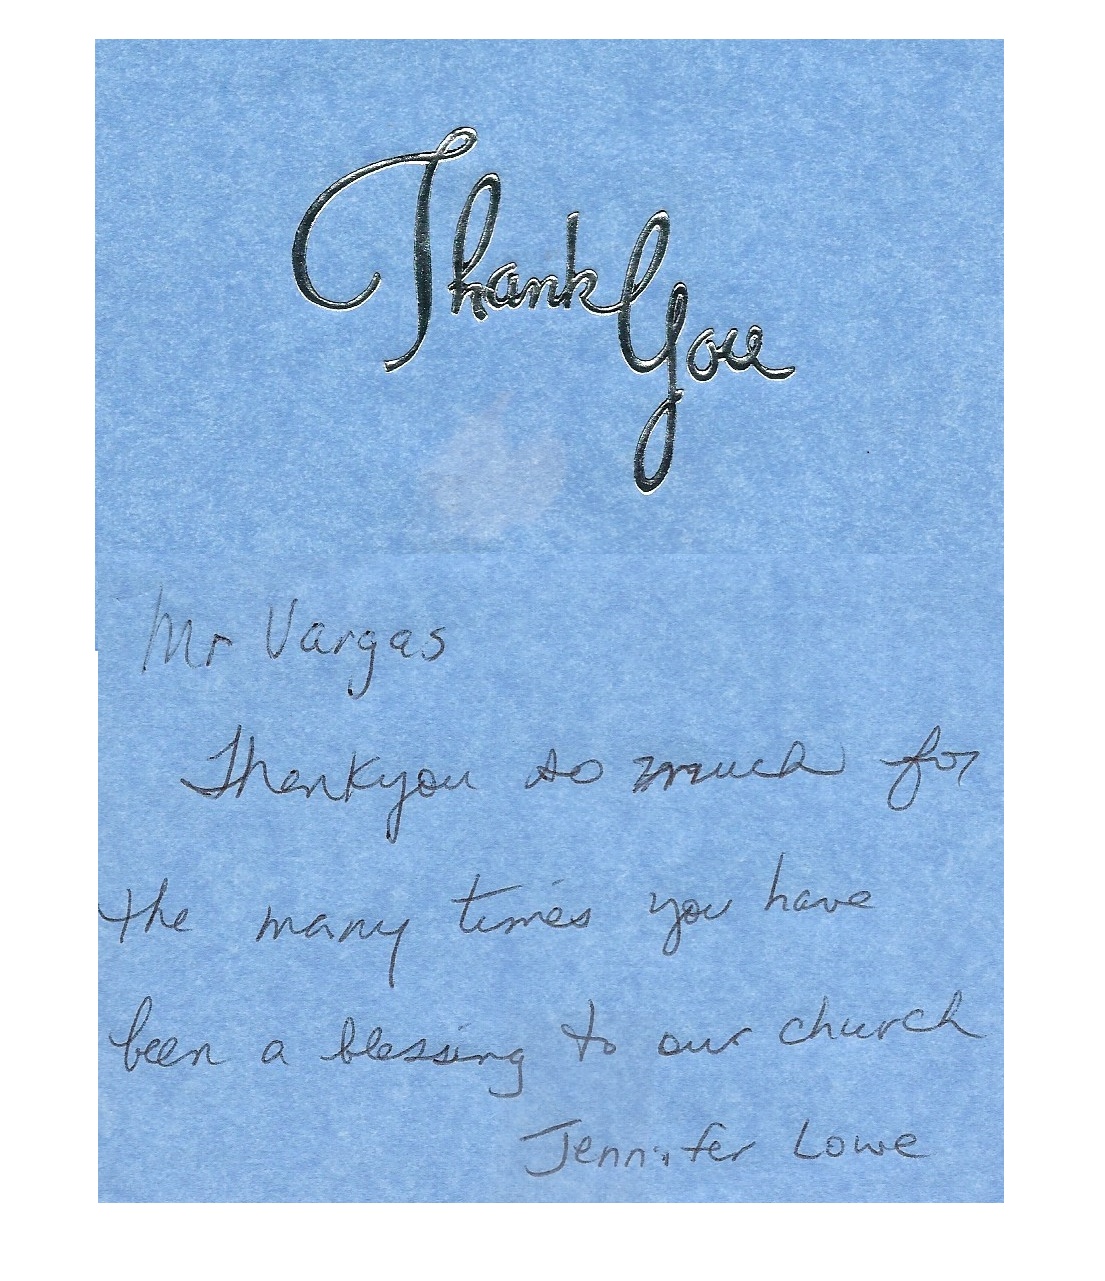 Thank You
Mr Vargas
Thankyou so much for
the many times you have
been a blessing to our church
Jennifer Lowe